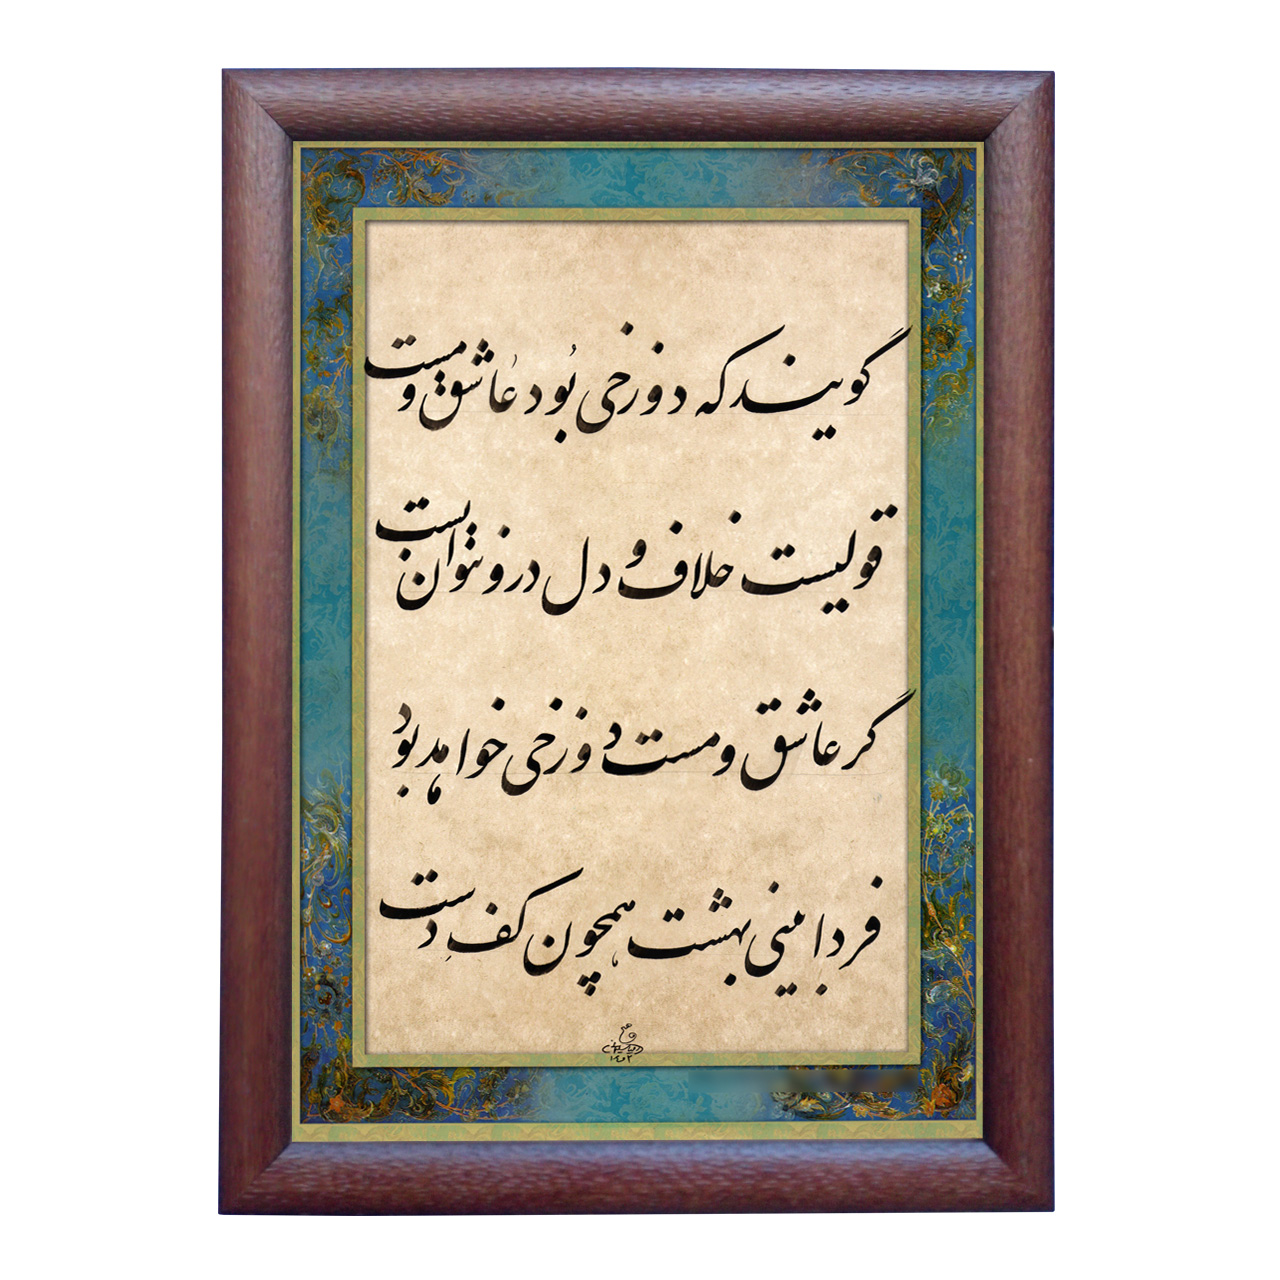 گویند که دوزخی بُود عاشق و مست
قولیست خلاف و دل در و نتوان بست
گر عاشق و مست دوزخی خواهد بود
فردا بینی بهشت همچون کفِ دست
۱۴۰۲